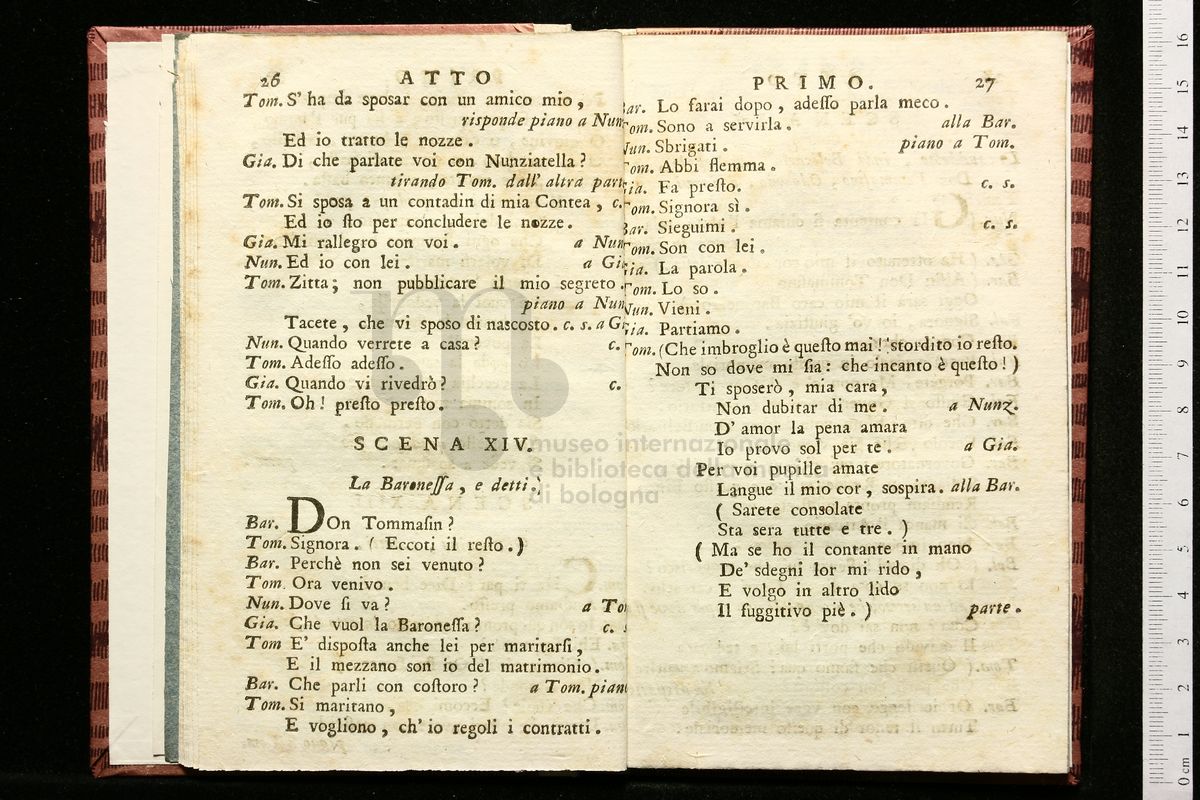 26 ATTO
Tom. S' ha da sposar con un amico mio,
risponde piano a Nun
Ed io tratto le nozze.
Gia. Di che parlate voi con Nunziatella?
tirando Tom. dall' altra part
Tom. Si sposa a un contadin di mia Contea, c.
Ed io ſto per concludere le nozze.
Gia. Mi rallegro con voi. a Nun
Nun. Ed io con lei. a Gi
Tom. Zitta; non pubblicare il mio segreto.
piano a Nun
Tacete, che vi sposo di nascosto. c. s. a G
Nun. Quando verrete a casa? c.
Tom. Adeſſo adeſſo.
Gia. Quando vi rivedrò? c.
Tom. Oh! preſto preſto.
SCENA XIV.
La Baroneſſa, e detti;
Bar. DOn Tommaſin?
Tom. Signora. (Eccoti il reſto.)
Bar. Perchè non sei venuto?
Tom. Ora venivo.
Nun. Dove ſi va? a To
Gia. Che vuol la Baroneſſa? c.
Tom E' dispoſta anche lei per maritarſi,
E il mezzano son io del matrimonio.
Bar. Che parli con coſtoro? a Tom. pian
Tom. Si maritano,
E vogliono, ch' io regoli i contratti.
PRIMO. 27
Bar. Lo farai dopo, adeſſo parla meco.
Tom. Sono a servirla. alla Bar.
Nun. Sbrigati. piano a Tom.
Tom. Abbi flemma.
Gia. Fa preſto. c. s.
Tom. Signora sì.
Bar. Sieguimi. c. s.
Tom. Son con lei.
Gia. La parola.
Tom. Lo so.
Nun. Vieni.
Gia. Partiamo.
Tom. (Che imbroglio è queſto mai! 'stordito io reſto.
Non so dove mi ſia: che incanto è queſto!)
Ti sposerò, mia cara,
Non dubitar di me. a Nunz.
D' amor la pena amara
Io provo sol per te. a Gia.
Per voi pupille amate
Langue il mio cor, sospira. alla Bar.
(Sarete consolate
Sta sera tutte e tre.)
(Ma se ho il contante in mano
De' sdegni lor mi rido,
E volgo in altro lido
Il fuggitivo piè.) parte.
museo internazionale
e biblioteca della musica
di bologna
0 cm 1 2 3 4 5 6 7 8 9 10 11 12 13 14 15 16